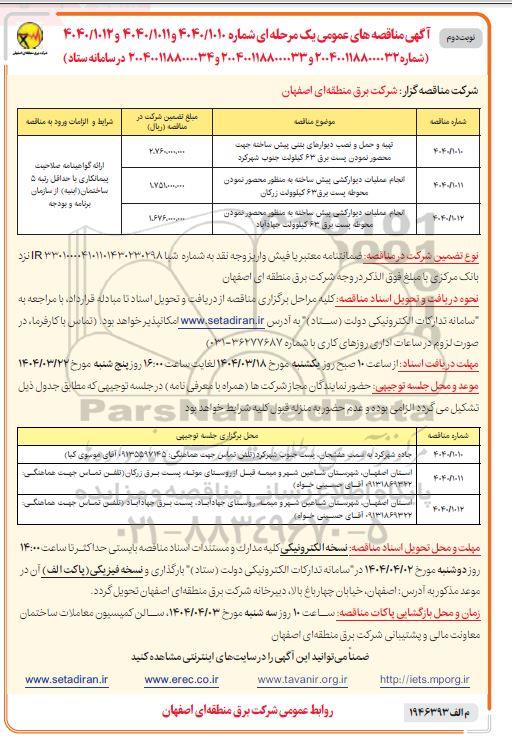 نوبت دوم
آگهی مناقصه های عمومی یک مرحله ای شماره ۴۰۴۰/۱۰۱۰ و ۴۰۴۰/۱۰۱۱ و ۴۰۴۰/۱۰۱۲
(شماره ۲۰۰۴۰۰۱۱۸۸۰۰۰۰۳۲ و ۲۰۰۴۰۰۱۱۸۸۰۰۰۰۳۳ و ۲۰۰۴۰۰۱۱۸۸۰۰۰۰۳۴ در سامانه ستاد)
شرکت مناقصه گزار: شرکت برق منطقه ای اصفهان
شماره مناقصه موضوع مناقصه مبلغ تضمین شرکت در مناقصه (ریال) شرایط و الزامات ورود به مناقصه
۴۰۴۰/۱۰۱۰ تهیه و حمل و نصب دیوارهای بتنی پیش ساخته جهت محصور نمودن پست برق ۶۳ کیلوولت جنوب شهرکرد ۲،۷۶۰،۰۰۰،۰۰۰
۴۰۴۰/۱۰۱۱ انجام عملیات دیوارکشی پیش ساخته به منظور محصور نمودن محوطه پست برق ۶۳ کیلوولت زرکان ۱،۷۵۱،۰۰۰،۰۰۰
۴۰۴۰/۱۰۱۲ انجام عملیات دیوارکشی پیش ساخته به منظور محصور نمودن محوطه پست برق ۶۳ کیلوولت جهادآباد ۱،۶۷۶،۰۰۰،۰۰۰
ارائه گواهینامه صلاحیت پیمانکاری با حداقل رتبه ۵ ساختمان (ابنیه) از سازمان برنامه و بودجه
نوع تضمین شرکت در مناقصه: ضمانتنامه معتبر یا فیش واریز وجه نقد به شماره شبا IR ۳۳۰۱۰۰۰۰۴۱۰۱۱۰۱۴۳۰۲۳۰۲۹۸ نزد
بانک مرکزی با مبلغ فوق الذکر در وجه شرکت برق منطقه ای اصفهان
نحوه دریافت و تحویل اسناد مناقصه: کلیه مراحل برگزاری مناقصه از دریافت و تحویل اسناد تا مبادله قرارداد، با مراجعه به
"سامانه تدارکات الکترونیکی دولت (ستاد)" به آدرس www.setadiran.ir امکانپذیر خواهد بود. (تماس با کارفرما، در
صورت لزوم در ساعات اداری روزهای کاری با شماره ۳۶۲۷۷۶۸۷-۰۳۱)
مهلت دریافت اسناد: از ساعت ۱۰ صبح روز یکشنبه مورخ ۱۴۰۴/۰۳/۱۸ لغایت ساعت ۱۶:۰۰ روز پنج شنبه مورخ ۱۴۰۴/۰۳/۲۲
موعد و محل جلسه توجیهی: حضور نمایندگان مجاز شرکت ها (همراه با معرفی نامه) در جلسه توجیهی که مطابق جدول ذیل
تشکیل می گردد الزامی بوده و عدم حضور به منزله قبول کلیه شرایط خواهد بود
شماره مناقصه محل برگزاری جلسه توجیهی
۴۰۴۰/۱۰۱۰ جاده شهرکرد به سمت هفشجان، پست جنوب شهرکرد (تلفن تماس جهت هماهنگی: ۰۹۱۳۵۵۹۷۱۴۵ آقای موسوی کیا)
۴۰۴۰/۱۰۱۱ استان اصفهان، شهرستان شاهین شهر و میمه قبل از روستای موته، پست برق زرکان (تلفن تماس جهت هماهنگی: ۰۹۱۳۱۸۶۹۳۲۲ آقای حسینی خواه)
۴۰۴۰/۱۰۱۲ استان اصفهان، شهرستان شاهین شهر و میمه، روستای جهادآباد، پست برق جهادآباد (تلفن تماس جهت هماهنگی: ۰۹۱۳۱۸۶۹۳۲۲ آقای حسینی خواه)
مهلت و محل تحویل اسناد مناقصه: نسخه الکترونیکی کلیه مدارک و مستندات اسناد مناقصه بایستی حداکثر تا ساعت ۱۴:۰۰
روز دوشنبه مورخ ۱۴۰۴/۰۴/۰۲ در "سامانه تدارکات الکترونیکی دولت (ستاد)" بارگذاری و نسخه فیزیکی (پاکت الف) آن در
موعد مذکور به آدرس: اصفهان، خیابان چهارباغ بالا، دبیرخانه شرکت برق منطقه ای اصفهان تحویل گردد.
زمان و محل بازگشایی پاکات مناقصه: ساعت ۱۰ روز سه شنبه مورخ ۱۴۰۴/۰۴/۰۳، سالن کمیسیون معاملات ساختمان
معاونت مالی و پشتیبانی شرکت برق منطقه ای اصفهان
ضمناً می توانید این آگهی را در سایت های اینترنتی مشاهده کنید
www.setadiran.ir www.erec.co.ir www.tavanir.org.ir http://iets.mporg.ir
روابط عمومی شرکت برق منطقه ای اصفهان
م الف ۱۹۴۶۳۹۳
ParsNamadData
۰۲۱-۸۸۳۴۹۶۷۰-۵